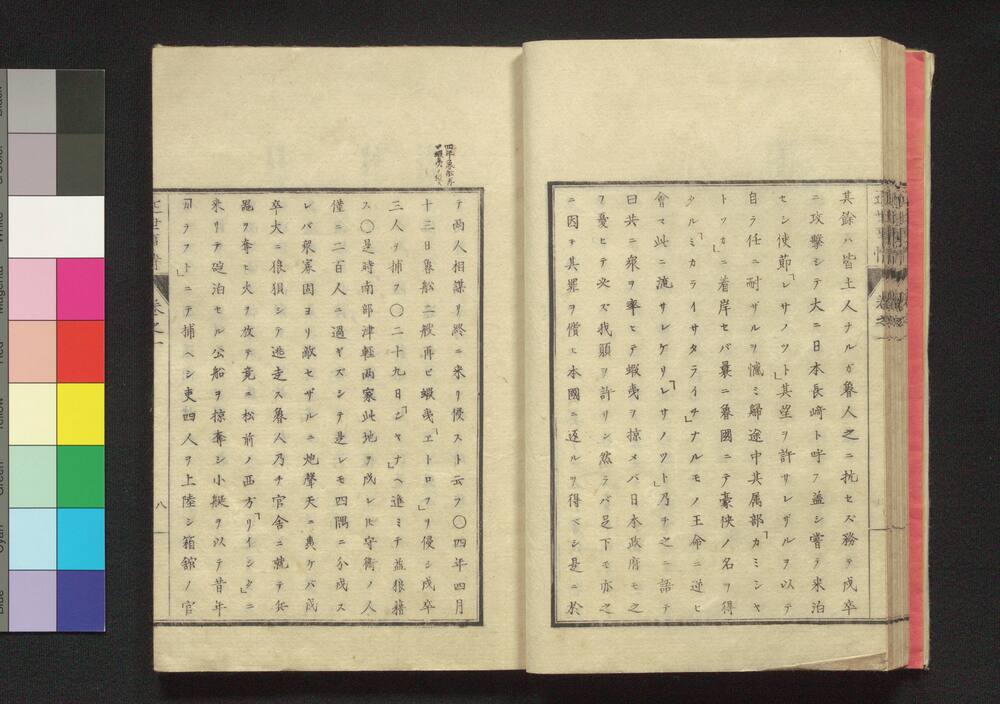 其餘ハ皆土人ナルガ魯人之ニ抗セズ務テ戍卒
ニ攻擊シテ大ニ日本長﨑ト呼フ益シ嘗テ来泊
セシ使節「レサノツト」其望ヲ許サレザルヲ以テ
自ラ任ニ耐ザルヲ愧ミ歸途中其属部「カミシヤ
トツカ」ニ着岸セバ曩ニ魯國ニテ豪侠ノ名ヲ得
タル「ミカライサタライチ」ナルモノ王命ニ逆ヒ
會マ此ニ流サレケリ「レサノツト」乃チ之ニ語テ
曰共ニ衆ヲ率ヒテ蝦夷ヲ掠メバ日本政府モ之
ヲ憂ヒテ必ズ我願ヲ許リン然ラバ足下モ亦之
ニ因テ其罪ヲ償ヒ本國ニ返ルヲ得ベシ是ニ於
テ両人相謀リ終ニ来リ侵スト云フ〇四年四月
十三日魯船二艘再ビ蝦夷「ヱトロフ」ヲ侵シ戍卒
三人ヲ捕フ〇二十九日「シヤナ」ヘ進ミテ益狼籍
ス〇是時南部津軽両家此地ヲ戍レドモ守衛ノ人
僅ニ二百人ニ過ギズシテ是レモ四隅ニ分戍ス
レバ衆寡固ヨリ敵セザルニ炮聲天ニ轟ケバ戍
卒大ニ狼狽シテ逃走ス魯人乃チ官舎ニ就テ兵
器ヲ奪ヒ火ヲ放テ竟ニ松前ノ西方「リイシリ」ニ
来リテ碇泊セル公船ヲ掠奪シ小艇ヲ以テ昔年
カラフト」ニテ捕ヘシ吏四人ヲ上陸シ箱舘ノ官
近世事情
巻之一
八